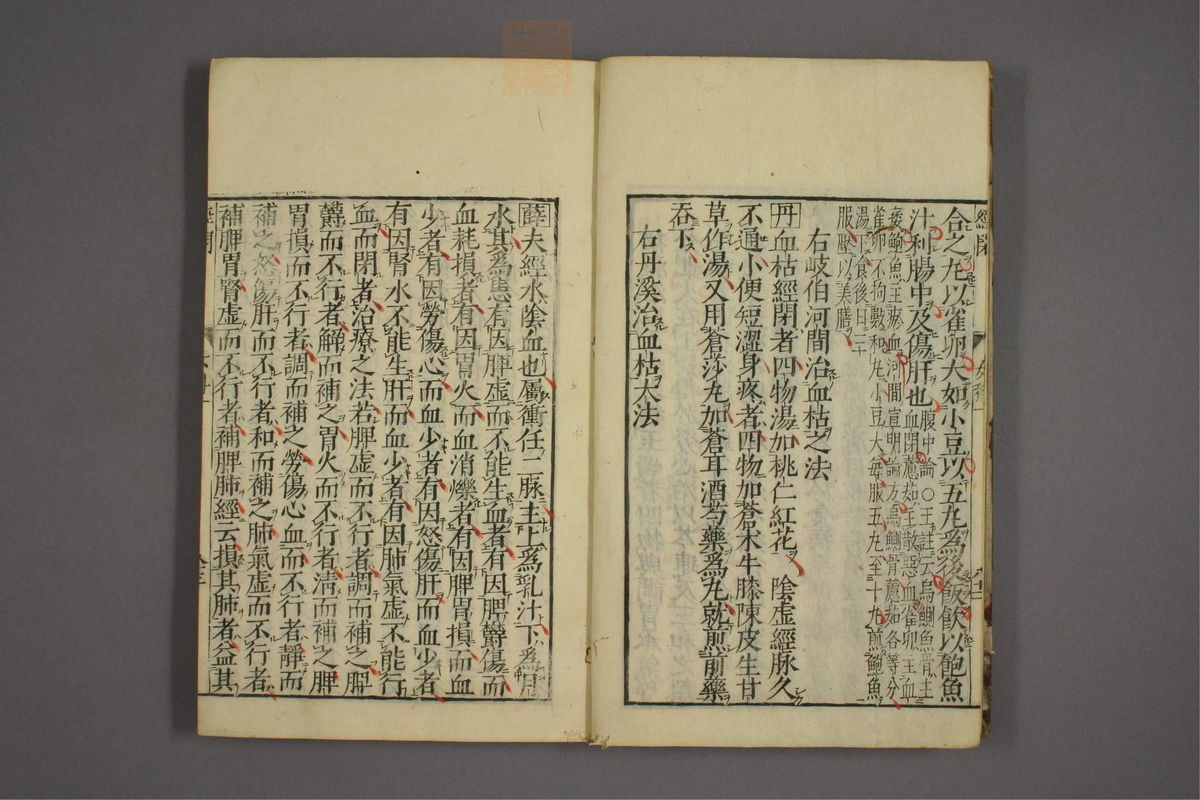 合之丸以雀卵大如小豆以五丸爲後飯飲以鮑魚
汁利腸中及傷肝也腹中論○王註云烏鰂魚骨主
血閉藘茹主散惡血雀卵主血
痿鮑魚主瘀血河間宣明論方烏鰂骨藘茹各等分
雀卵不拘數和丸小豆大每服五丸至十九煎鮑魚
湯下食後日三
服壓以美膳
右岐伯河間治血枯之法
丹血枯經閉者四物湯加桃仁紅花 陰虛經脉久
不通小便短澀身疼者四物加蒼朮牛膝陳皮生甘
草作湯又用蒼莎丸加蒼耳酒芍藥爲丸就煎前藥
吞下
右丹溪治血枯大法
薛夫經水陰血也屬衝任二脉主上爲乳汁下爲月
水其爲患有因脾虛而不能生血者有因脾鬱傷而
血耗損者有因胃火而血消爍者有因脾胃損而血
少者有因勞傷心而血少者有因怒傷肝而血少者
有因腎水不能生肝而血少者有因肺氣虛不能行
血而閉者治療之法若脾虛而不行者調而補之脾
鬱而不行者解而補之胃火而不行者淸而補之脾
胃損而不行者調而補之勞傷心血而不行者靜而
補之怒傷肝而不行者和而補之肺氣虛而不行者
補脾胃腎虛而不行者補脾肺經云損其肺者益其